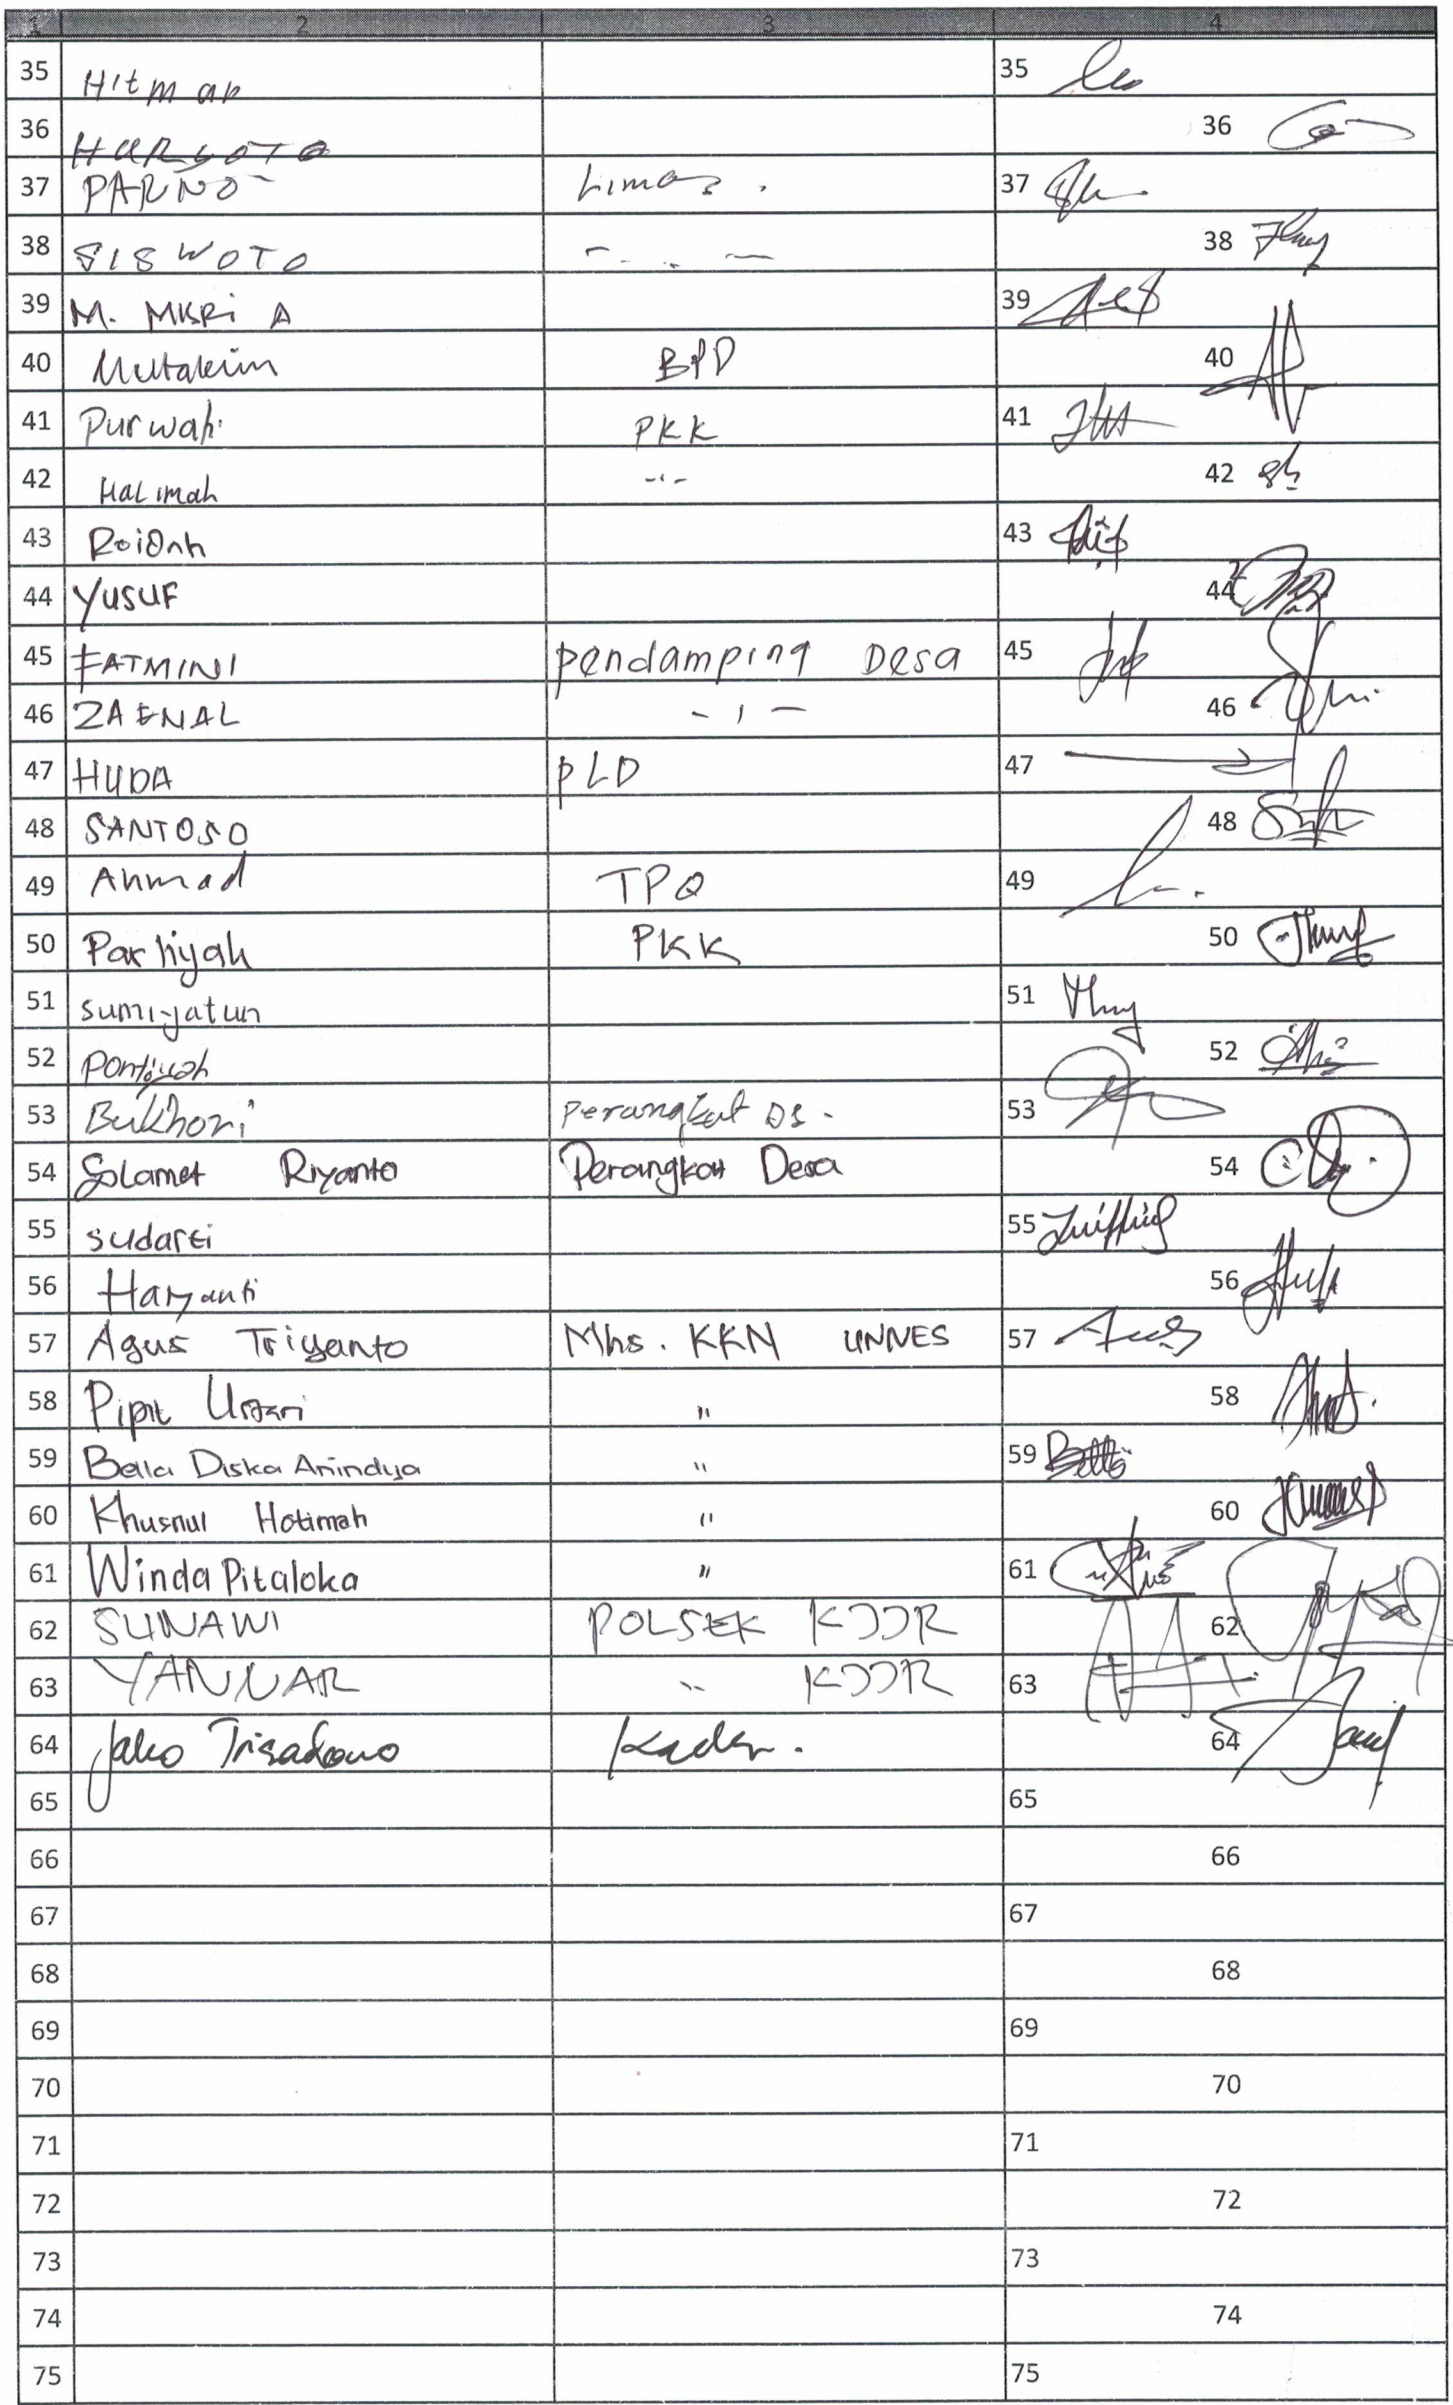 1 2 3 4
35 Hitman 35
36 HARSOTO 36
37 PARNO Limas. 37
38 SISWOTO -..- 38
39 M. MKRi A 39
40 Muttakim BPD 40
41 Purwati PKK 41
42 HaLimah -"- 42
43 43
44 YUSUF 44
45 FATMINI pendamping Desa 45
46 ZAENAL - ı - 46
47 HUDA PLD 47
48 SANTOSO 48
49 Ahmad TPQ 49
50 Partiyah PKK 50
51 sumiyatun 51
52 Pontiyah 52
53 Bukhori Perangkat Ds. 53
54 Slamet Riyanto Perangkat Desa 54
55 sudarti 55
56 Haryanti 56
57 Agus Triyanto Mhs. KKN UNNES 57
58 Pipit " 58
59 Bella Diska Anindya " 59 Bella
60 Khusnul Hotimah " 60
61 Winda Pitaloka " 61
62 SUNAWI POLSEK KJJR 62
63 YANUAR " KJJR 63
64 Kader. 64
65 65
66 66
67 67
68 68
69 69
70 70
71 71
72 72
73 73
74 74
75 75